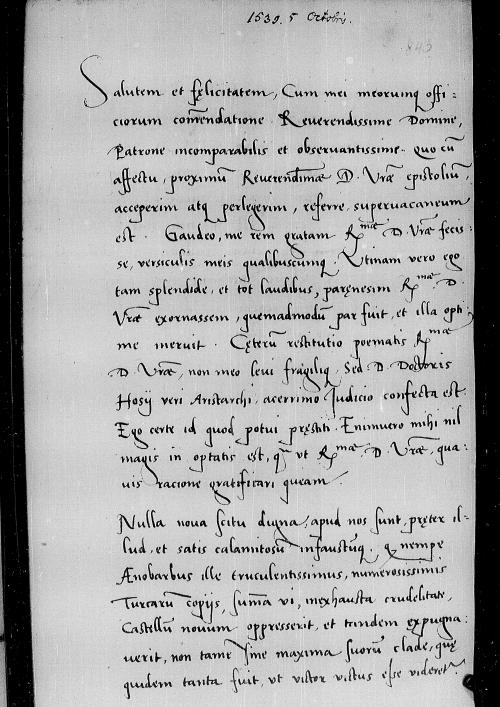 1539. 5 Octobris.
843
Salutem et fęlicitatem, Cum mei meorumq̃ offi-
ciorum com̃endatione. Reverendissime Domine,
Patrone incomparabilis et observantissime. Quo cū
affectu, proximū Reverendim̃æ D. Vræ̃ epistoliũ,
acceperim atq̃ perlegerim, referre supervacaneum
est. Gaudeo, me rem gratam R^mæ D. Vræ̃ fecis-
se, versiculis meis qualibuscumq̃. Vtinam vero ego
tam splendide, et tot laudibus, paręnesim R^mæ. D.
Vræ̃ exornassem, quemadmodū par fuit, et illa opti-
me meruit. Cęterū restitutio poematis R^mæ
D. Vræ̃, non meo levi fragiliq̃. Sed D. Doctoris
Hosij veri Aristarchi, acerrimo Judicio confecta est.
Ego certe id quod potui pręstiti. Enimvero mihi nil
magis in optatis est, q̃ vt R^mæ. D. Vræ̃, qua-
vis racione gratificari queam.
Nulla nova scitu digna, apud nos sunt, pręter il-
lud, et satis calamitosũ infaustũq̃. q nempe
Ænobarbus ille truculentissimus, numerosissimis
Turcarũ copijs, sum̃a vi, inexhausta crudelitate,
Castellũ novum oppresserit, et tandem expugna-
verit, non tamẽ sine maxima suorũ clade, quę
quidem tanta fuit, vt victor victus esse videret^r.